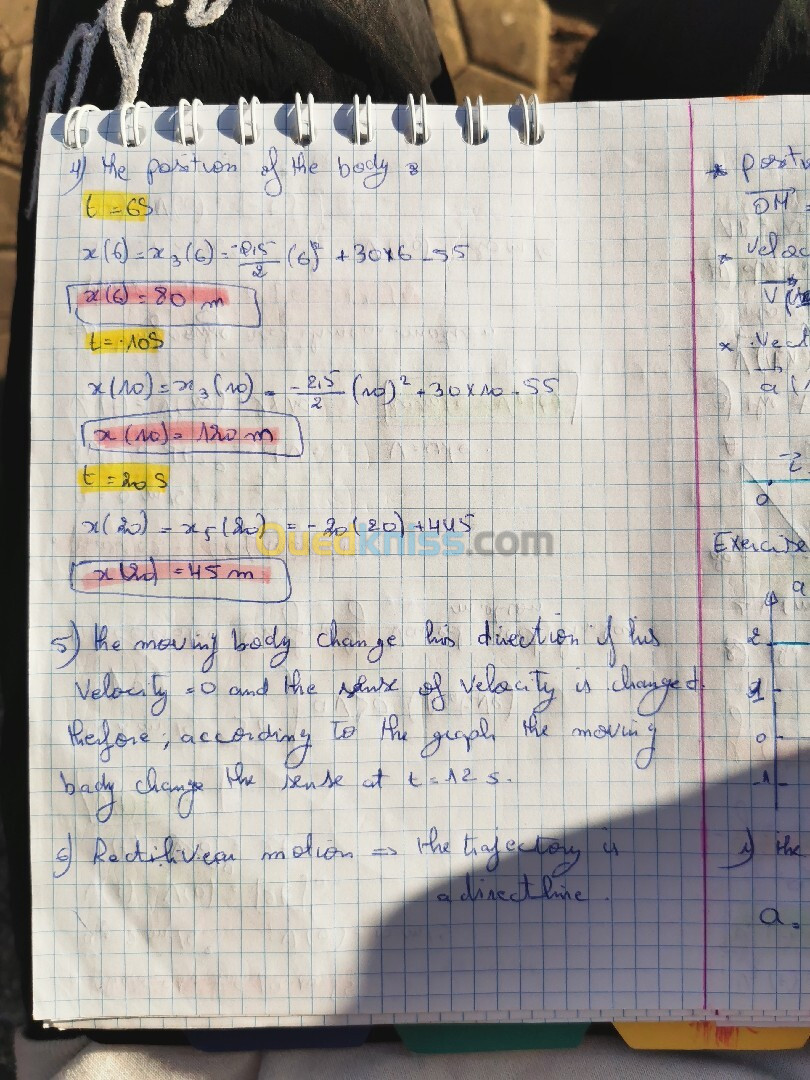 4) the position of the body :
t = 6s
x(6) = x₃(6) = -2,5/2 (6)² + 30x6 - 55
x(6) = 80 m
t = 10s
x(10) = x₃(10) = -2,5/2 (10)² + 30x10 - 55
x(10) = 120 m
t = 20s
x(20) = x₅(20) = -20(20) + 445
Ouedkniss.com
x(20) = 45 m
5) the moving body change his direction if his
velocity = 0 and the sense of velocity is changed.
therfore, according to the graph the moving
body change the sense at t = 12 s.
6) Rectilivear motion => the trajectory is
a direct line.
* positi
OM =
* Veloc
V(
* Vect
a (
i
0
Exercise
a
2
1
0
-1
1) the
a =